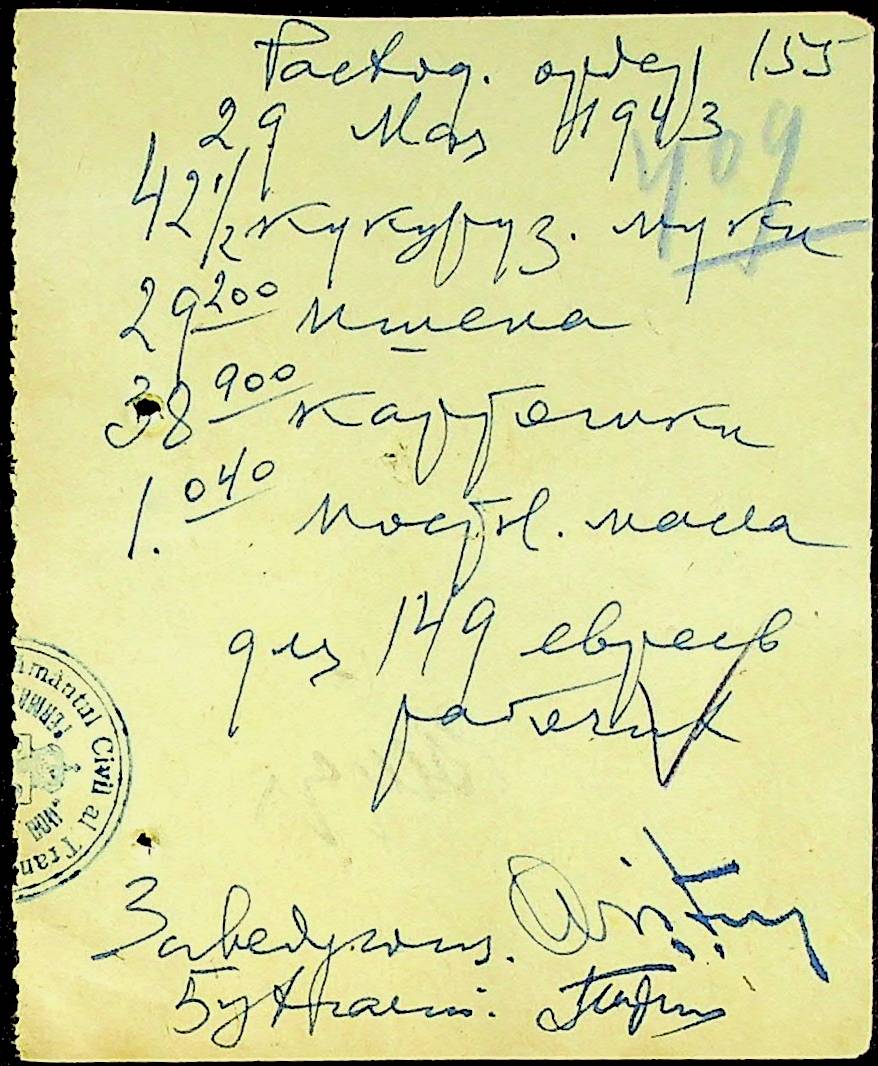 Расход. ордер 155
29 Мая 1943
409
42 1/2 кукуруз. муки
29 200 пшена
38 900 картошки
1. 040 постн. масла
для 149 евреев
рабочих
mântul Civil al Tran
Заведующ.
Бухгалт.